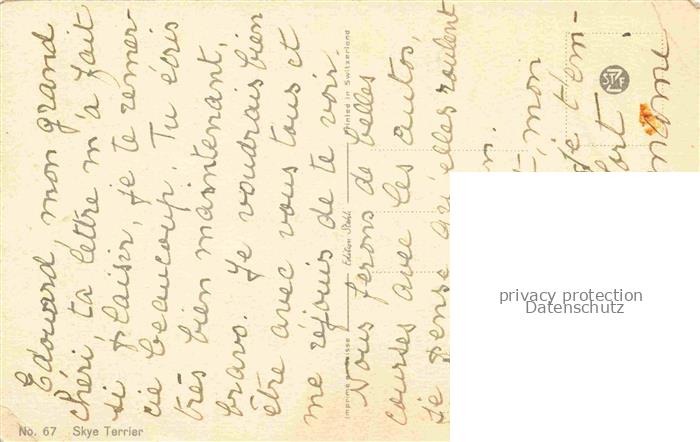 Edouard, mon grand
chéri, ta lettre m'a fait
si plaisir, je te remer-
cie beaucoup. Tu écris
très bien maintenant,
bravo. Je voudrais bien
être avec vous tous et
me réjouis de te voir.
Nous ferons de belles
courses avec les autos,
je pense qu'elles roulent
mon
je t'em-
fort
Imprimé en Suisse
Edition Stehli
Printed in Switzerland
No. 67 Skye Terrier
privacy protection
Datenschutz